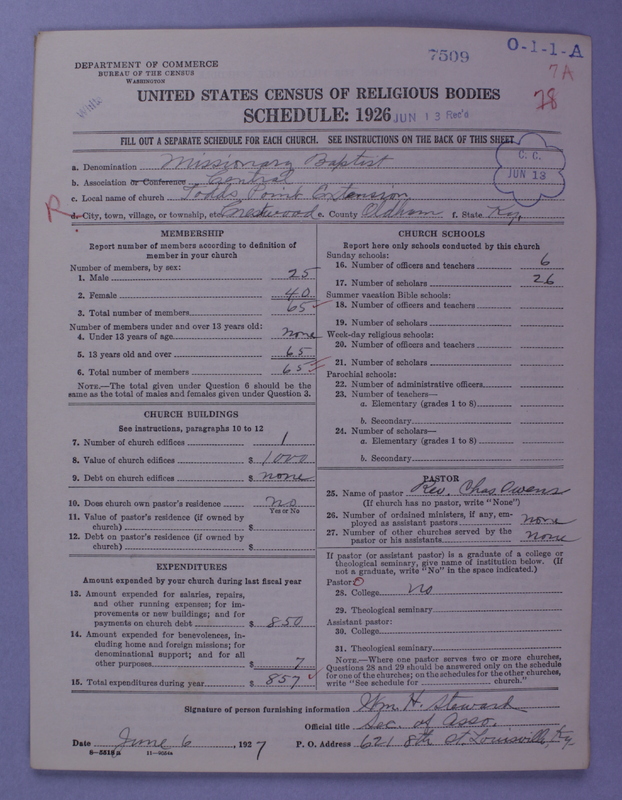 7509
O-1-1-A
7A
78
DEPARTMENT OF COMMERCE
BUREAU OF THE CENSUS
WASHINGTON
UNITED STATES CENSUS OF RELIGIOUS BODIES
SCHEDULE: 1926 JUN 13 Rec'd
FILL OUT A SEPARATE SCHEDULE FOR EACH CHURCH. SEE INSTRUCTIONS ON THE BACK OF THIS SHEET
C. C.
JUN 13
a. Denomination Missionary Baptist
b. Association or Conference Central
c. Local name of church Todds Point Extension
R.
d. City, town, village, or township, etc. Crestwood e. County Oldham f. State Ky.
MEMBERSHIP
Report number of members according to definition of
member in your church
Number of members, by sex:
1. Male 25
2. Female 40
3. Total number of members 65
Number of members under and over 13 years old:
4. Under 13 years of age none
5. 13 years old and over 65
6. Total number of members 65
NOTE.—The total given under Question 6 should be the
same as the total of males and females given under Question 3.
CHURCH BUILDINGS
See instructions, paragraphs 10 to 12
7. Number of church edifices 1
8. Value of church edifices $ 1000
9. Debt on church edifices $ none
10. Does church own pastor's residence no
Yes or No
11. Value of pastor's residence (if owned by
church) $
12. Debt on pastor's residence (if owned by
church) $
EXPENDITURES
Amount expended by your church during last fiscal year
13. Amount expended for salaries, repairs,
and other running expenses; for im-
provements or new buildings; and for
payments on church debt $ 850
14. Amount expended for benevolences, in-
cluding home and foreign missions; for
denominational support; and for all
other purposes $ 7
15. Total expenditures during year $ 857
CHURCH SCHOOLS
Report here only schools conducted by this church
Sunday schools:
16. Number of officers and teachers 6
17. Number of scholars 26
Summer vacation Bible schools:
18. Number of officers and teachers
19. Number of scholars
Week-day religious schools:
20. Number of officers and teachers
21. Number of scholars
Parochial schools:
22. Number of administrative officers
23. Number of teachers—
a. Elementary (grades 1 to 8)
b. Secondary
24. Number of scholars—
a. Elementary (grades 1 to 8)
b. Secondary
PASTOR
25. Name of pastor Rev. Chas Owens
(If church has no pastor, write "None")
26. Number of ordained ministers, if any, em-
ployed as assistant pastors none
27. Number of other churches served by the
pastor or his assistants none
If pastor (or assistant pastor) is a graduate of a college or
theological seminary, give name of institution below. (If
not a graduate, write "No" in the space indicated.)
Pastor:
28. College No
29. Theological seminary
Assistant pastor:
30. College
31. Theological seminary
NOTE.—Where one pastor serves two or more churches,
Questions 28 and 29 should be answered only on the schedule
for one of the churches; on the schedules for the other churches,
write "See schedule for church."
Signature of person furnishing information Wm. H. Steward
Official title Sec. of Asso.
Date June 6, 1927 P. O. Address 621 8th St. Louisville, Ky
11-9034a